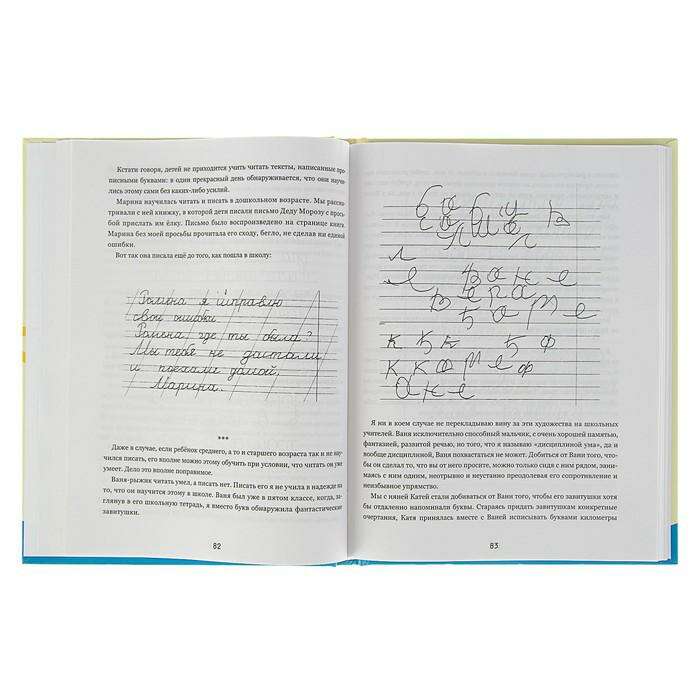 Кстати говоря, детей не приходится учить читать тексты, написанные про-
писными буквами: в один прекрасный день обнаруживается, что они научи-
лись этому сами без каких-либо усилий.
Марина научилась читать и писать в дошкольном возрасте. Мы рассма-
тривали с ней книжку, в которой дети писали письмо Деду Морозу с прось-
бой прислать им ёлку. Письмо было воспроизведено на странице книги.
Марина без моей просьбы прочитала его сходу, бегло, не сделав ни единой
ошибки.
Вот так она писала ещё до того, как пошла в школу:
я
свои ошибки
где ты была?
Мы тебе не достали
и поехали домой.
Марина.
***
Даже в случае, если ребёнок среднего, а то и старшего возраста так и не нау-
чился писать, его вполне можно этому обучить при условии, что читать он уже
умеет. Дело это вполне поправимое.
Ваня-рыжик читать умел, а писать нет. Писать его я не учила в надежде на
то, что он научится этому в школе. Ваня был уже в пятом классе, когда, за-
глянув в его школьную тетрадь, я вместо букв обнаружила фантастические
завитушки.
82
Я ни в коем случае не перекладываю вину за эти художества на школьных
учителей. Ваня исключительно способный мальчик, с очень хорошей памятью,
фантазией, развитой речью, но того, что я называю «дисциплиной ума», да и
вообще дисциплиной, Ваня похвастаться не может. Добиться от Вани того, что-
бы он сделал то, что вы от него просите, можно только сидя с ним рядом, зани-
маясь с ним одним, неотрывно и неустанно преодолевая его сопротивление и
неизбывное упрямство.
Мы с няней Катей стали добиваться от Вани того, чтобы его завитушки хотя
бы отдалённо напоминали буквы. Стараясь придать завитушкам конкретные
очертания, Катя принялась вместе с Ваней исписывать буквами километры
83